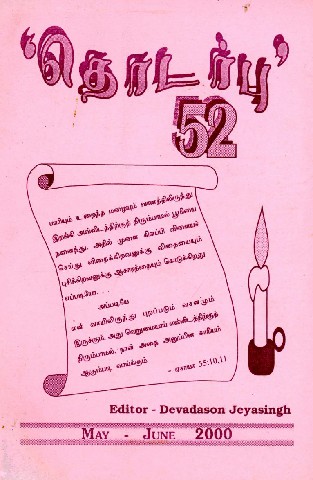 'தொடர்பு'
52
மாரியும் உறைந்த மழையும் வானத்திலிருந்து
இறங்கி அவ்விடத்திற்குத் திரும்பாமல் பூமியை
நனைத்து, அதில் முளை கிளம்பி விளையச்
செய்து, விதைக்கிறவனுக்கு விதையையும்
புசிக்கிறவனுக்கு ஆகாரத்தையும் கொடுக்கிறது
எப்படியோ....
அப்படியே
என் வாயிலிருந்து புறப்படும் வசனமும்
இருக்கும், அது வெறுமையாய் என்னிடத்திற்குத்
திரும்பாமல், நான் அதை அனுப்பின காரியம்
ஆகும்படி வாய்க்கும்.
- ஏசாயா 55:10,11
Editor - Devadason Jeyasingh
MAY - JUNE 2000